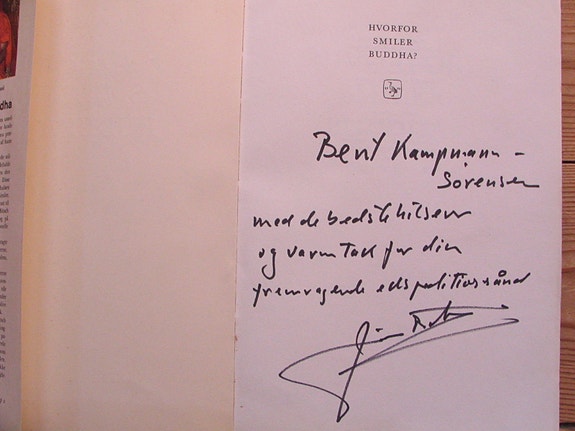 HVORFOR
SMILER
BUDDHA?
Bent Kampmann -
Sörensen
med de bedste hilsener
og varm Tak for din
fremragende ekspeditionsånd
dha